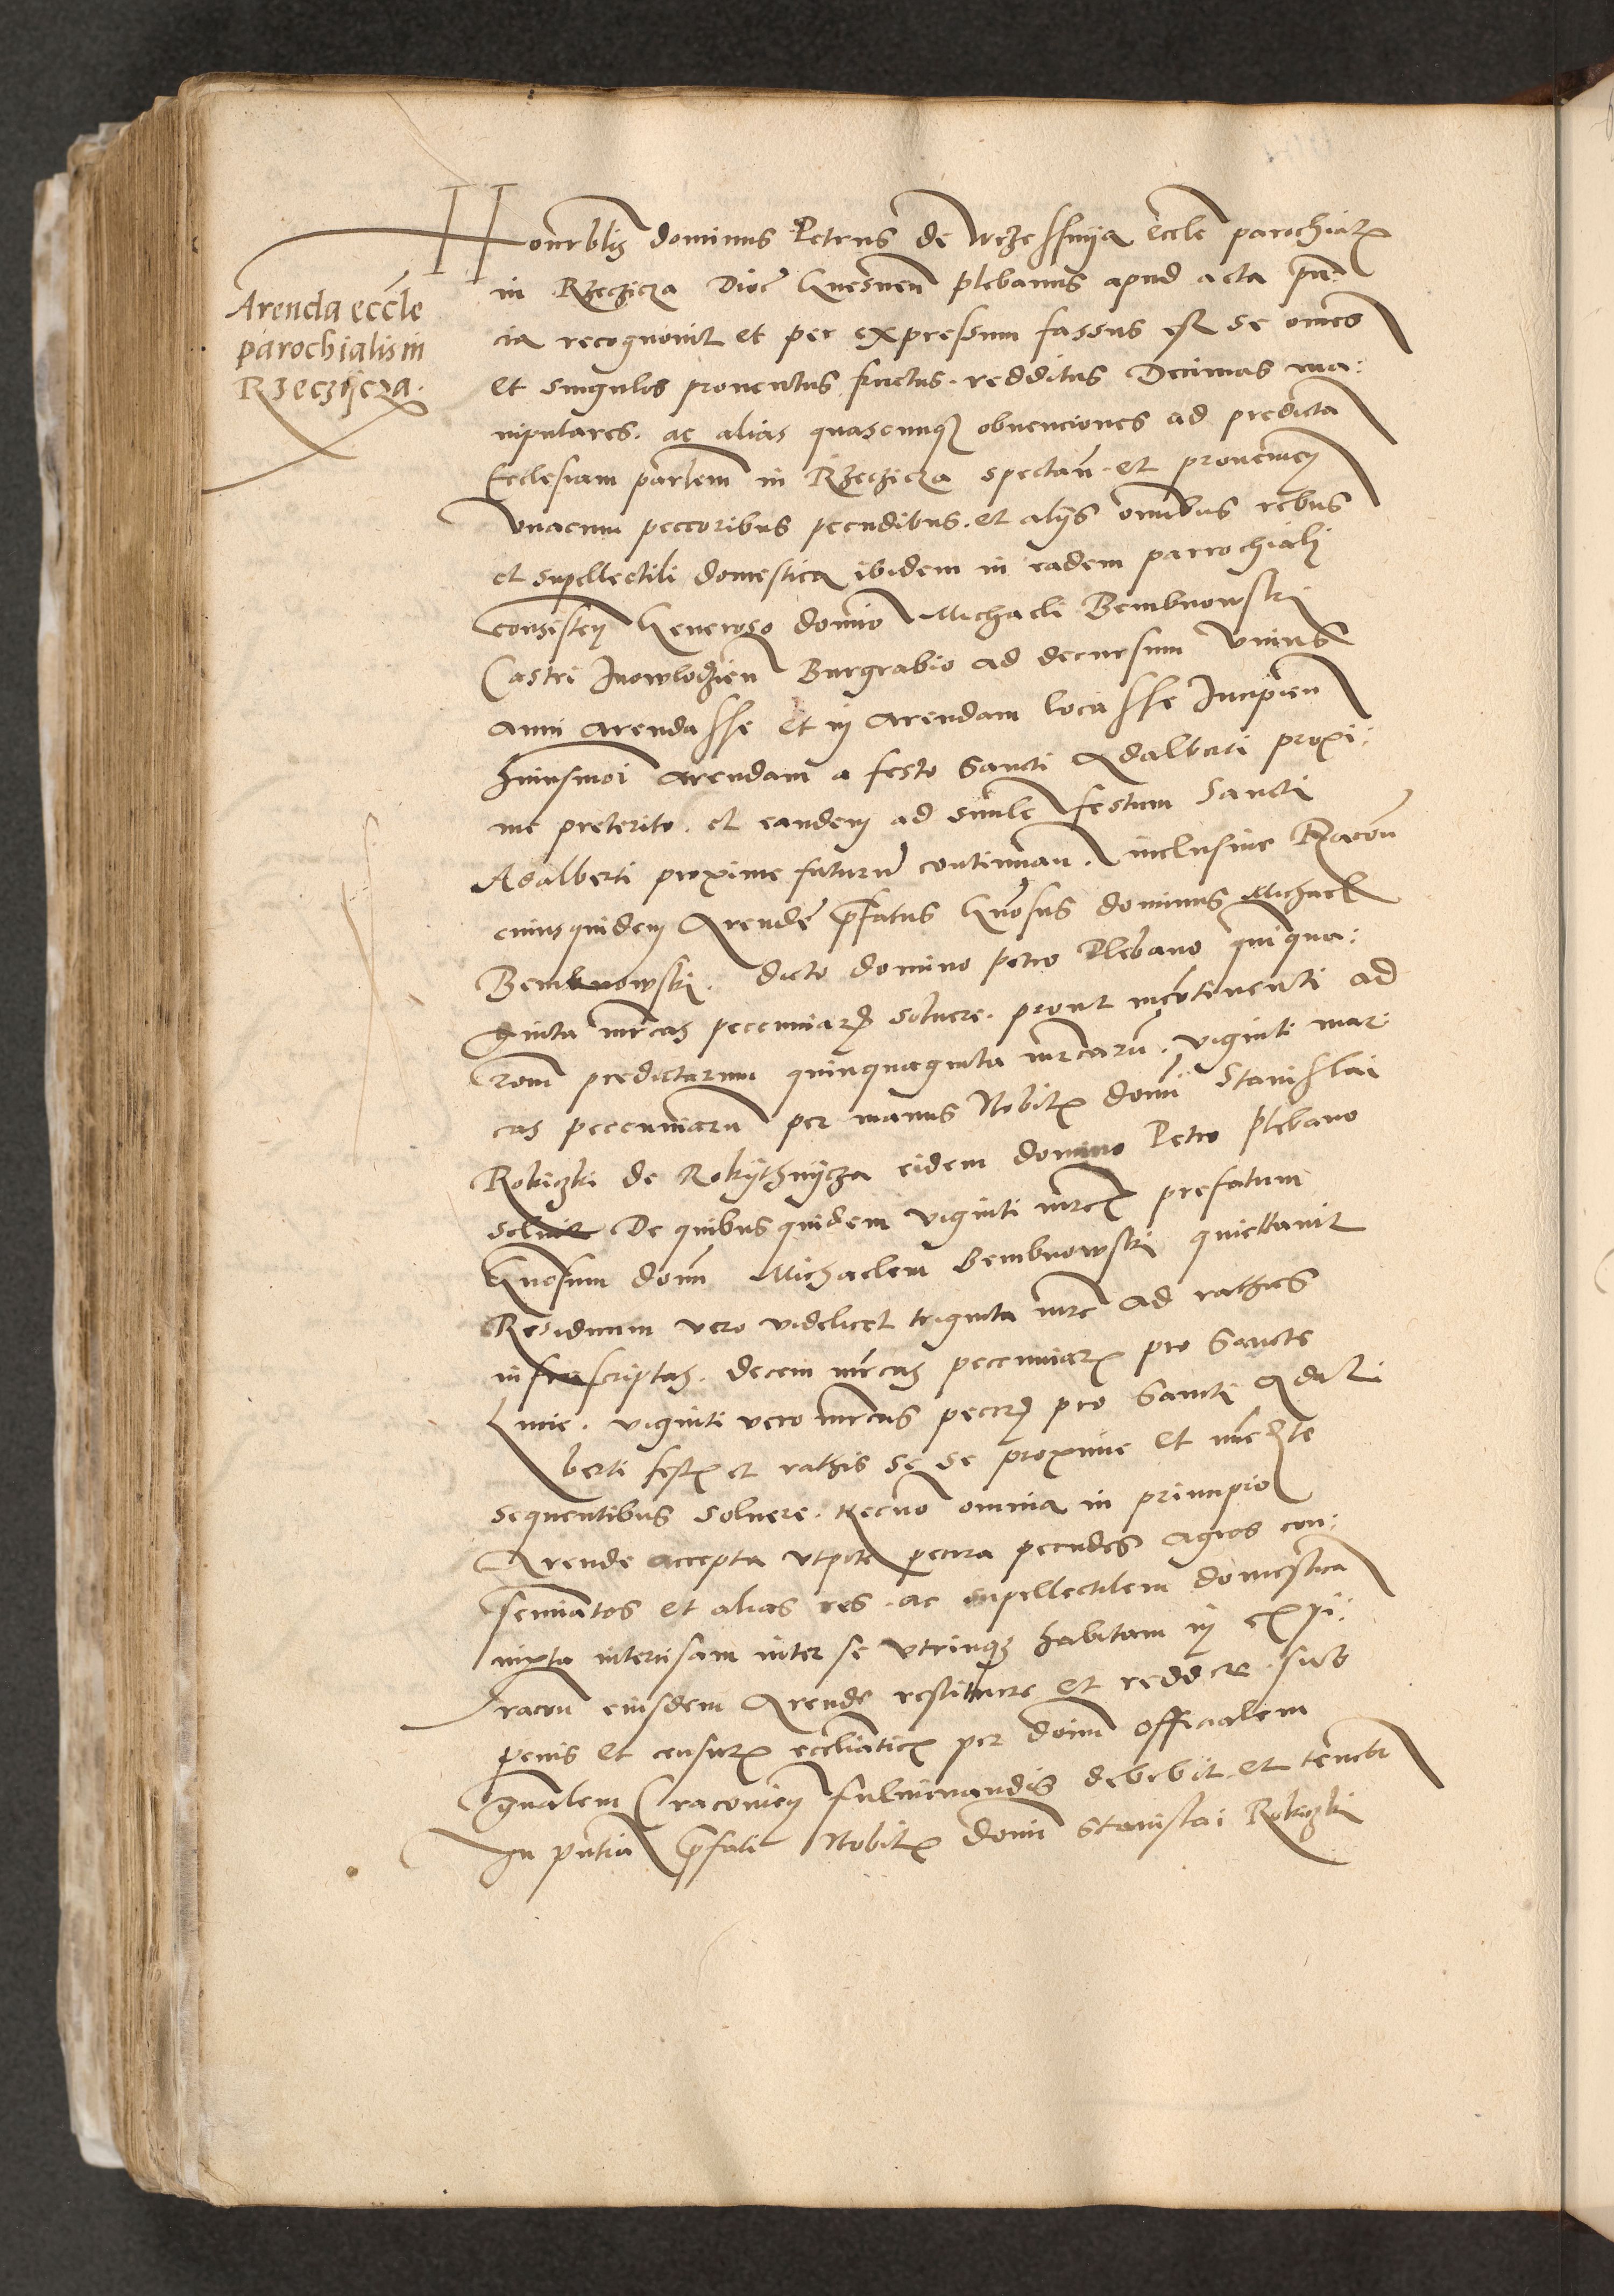 Arenda eccle
parochialis in
Rzeczijcza.
Honrblis dominus Petrus de Wrzessnija eccle parochialis
in Rzeczicza Dioc Gnesnen plebanus apud acta pn
cia recognovit et per expressum fassus est se omes
et singulos proventus fructus. redditus Decimas ma:
nipulares. ac alias quascunque obvenciones ad predicta
Ecclesiam parlem in Rzeczicza spectan. et provenien
unacum peccoribus pecudibus. et alijs omibus rebus
et supellectili domestica ibidem in eadem parrochiali
consisten Generoso domio Michaeli Bembnowski
Castri Inowlodzien Burgrabio ad decursum unius
anni arendasse et in arendam locasse Incipien
huiusmoi arendam a festo Sancti Adalberti proxi:
me preterito. et eandem ad simile festum Sancti
Adalberti proxime futurum continuan. inclusive Racon
cuiusquidem Arende prefatus Gnosus dominus Michael
Bembnowski. dicto domino Petro Plebano quiqua:
ginta mrcas pecuniarum solvere. prout incotinenti ad
ronem predictarum quinquaginta mrcaru. viginti mar
cas pecuniaru per manus Nobilis domi Stanislai
Rokiczki de Rokythnycza eidem domino Petro plebano
solvit De quibusquidem viginti mrcis prefatum
Gnosum domm Michaelem Bembnowski quiettavit
Residuum vero videlicet triginta mrc ad rathas
infrascriptas. decem mrcas pecuniarum pro Sancte
Lucie. viginti vero mrcas peccarum pro Sancti Adal
berti festis et rathis se se proxime et immediate
sequentibus solvere. Necno omnia in principio
Arende accepta utpote pecora pecudes agros con:
seminatos et alias res. ac supellectilem domestica
iuxta intercisam inter se utrinque habitam in expi:
racon eiusdem Arende restituere et reddere. sub
penis et censuris ecclesiasticis per domm Officialem
gnalem Cracovien fulminandis debebit. et tenebr
In pntia prefati Nobilis domi Stanislai Rokiczki